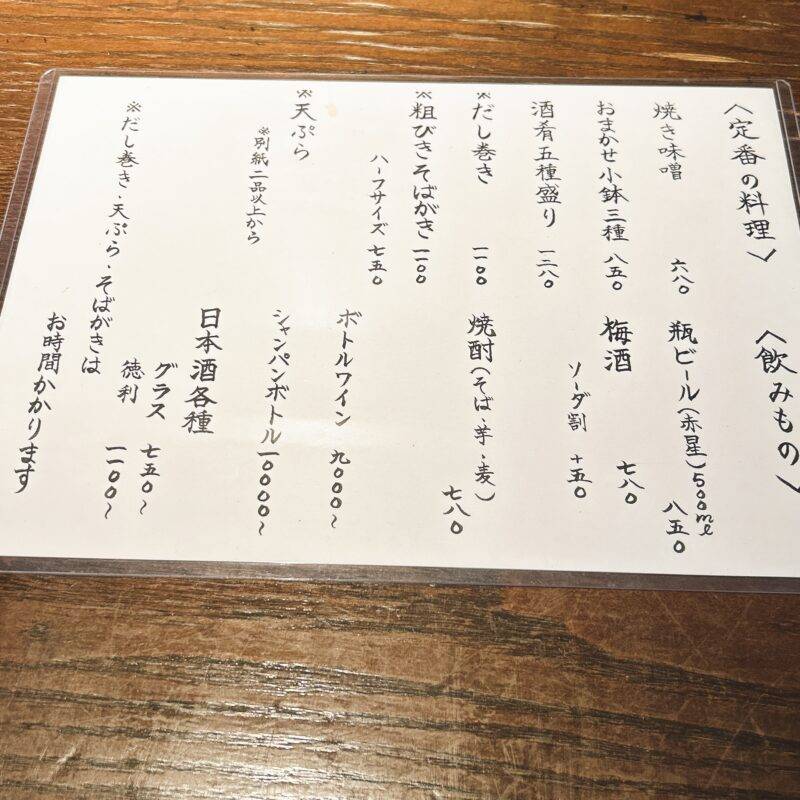 〈定番の料理〉
焼き味噌 六八〇
おまかせ小鉢三種 八五〇
酒肴五種盛り 一三八〇
※だし巻き 一一〇〇
※粗びきそばがき 一一〇〇
ハーフサイズ 七五〇
※天ぷら
※別紙二品以上から
〈飲みもの〉
瓶ビール(赤星)500ml
八五〇
梅酒 七八〇
ソーダ割 +五〇
焼酎(そば・芋・麦)
七八〇
ボトルワイン 九〇〇〇~
シャンパンボトル 一〇〇〇〇~
日本酒各種
グラス 七五〇~
徳利 一一〇〇~
※だし巻き・天ぷら・そばがきは
お時間かかります